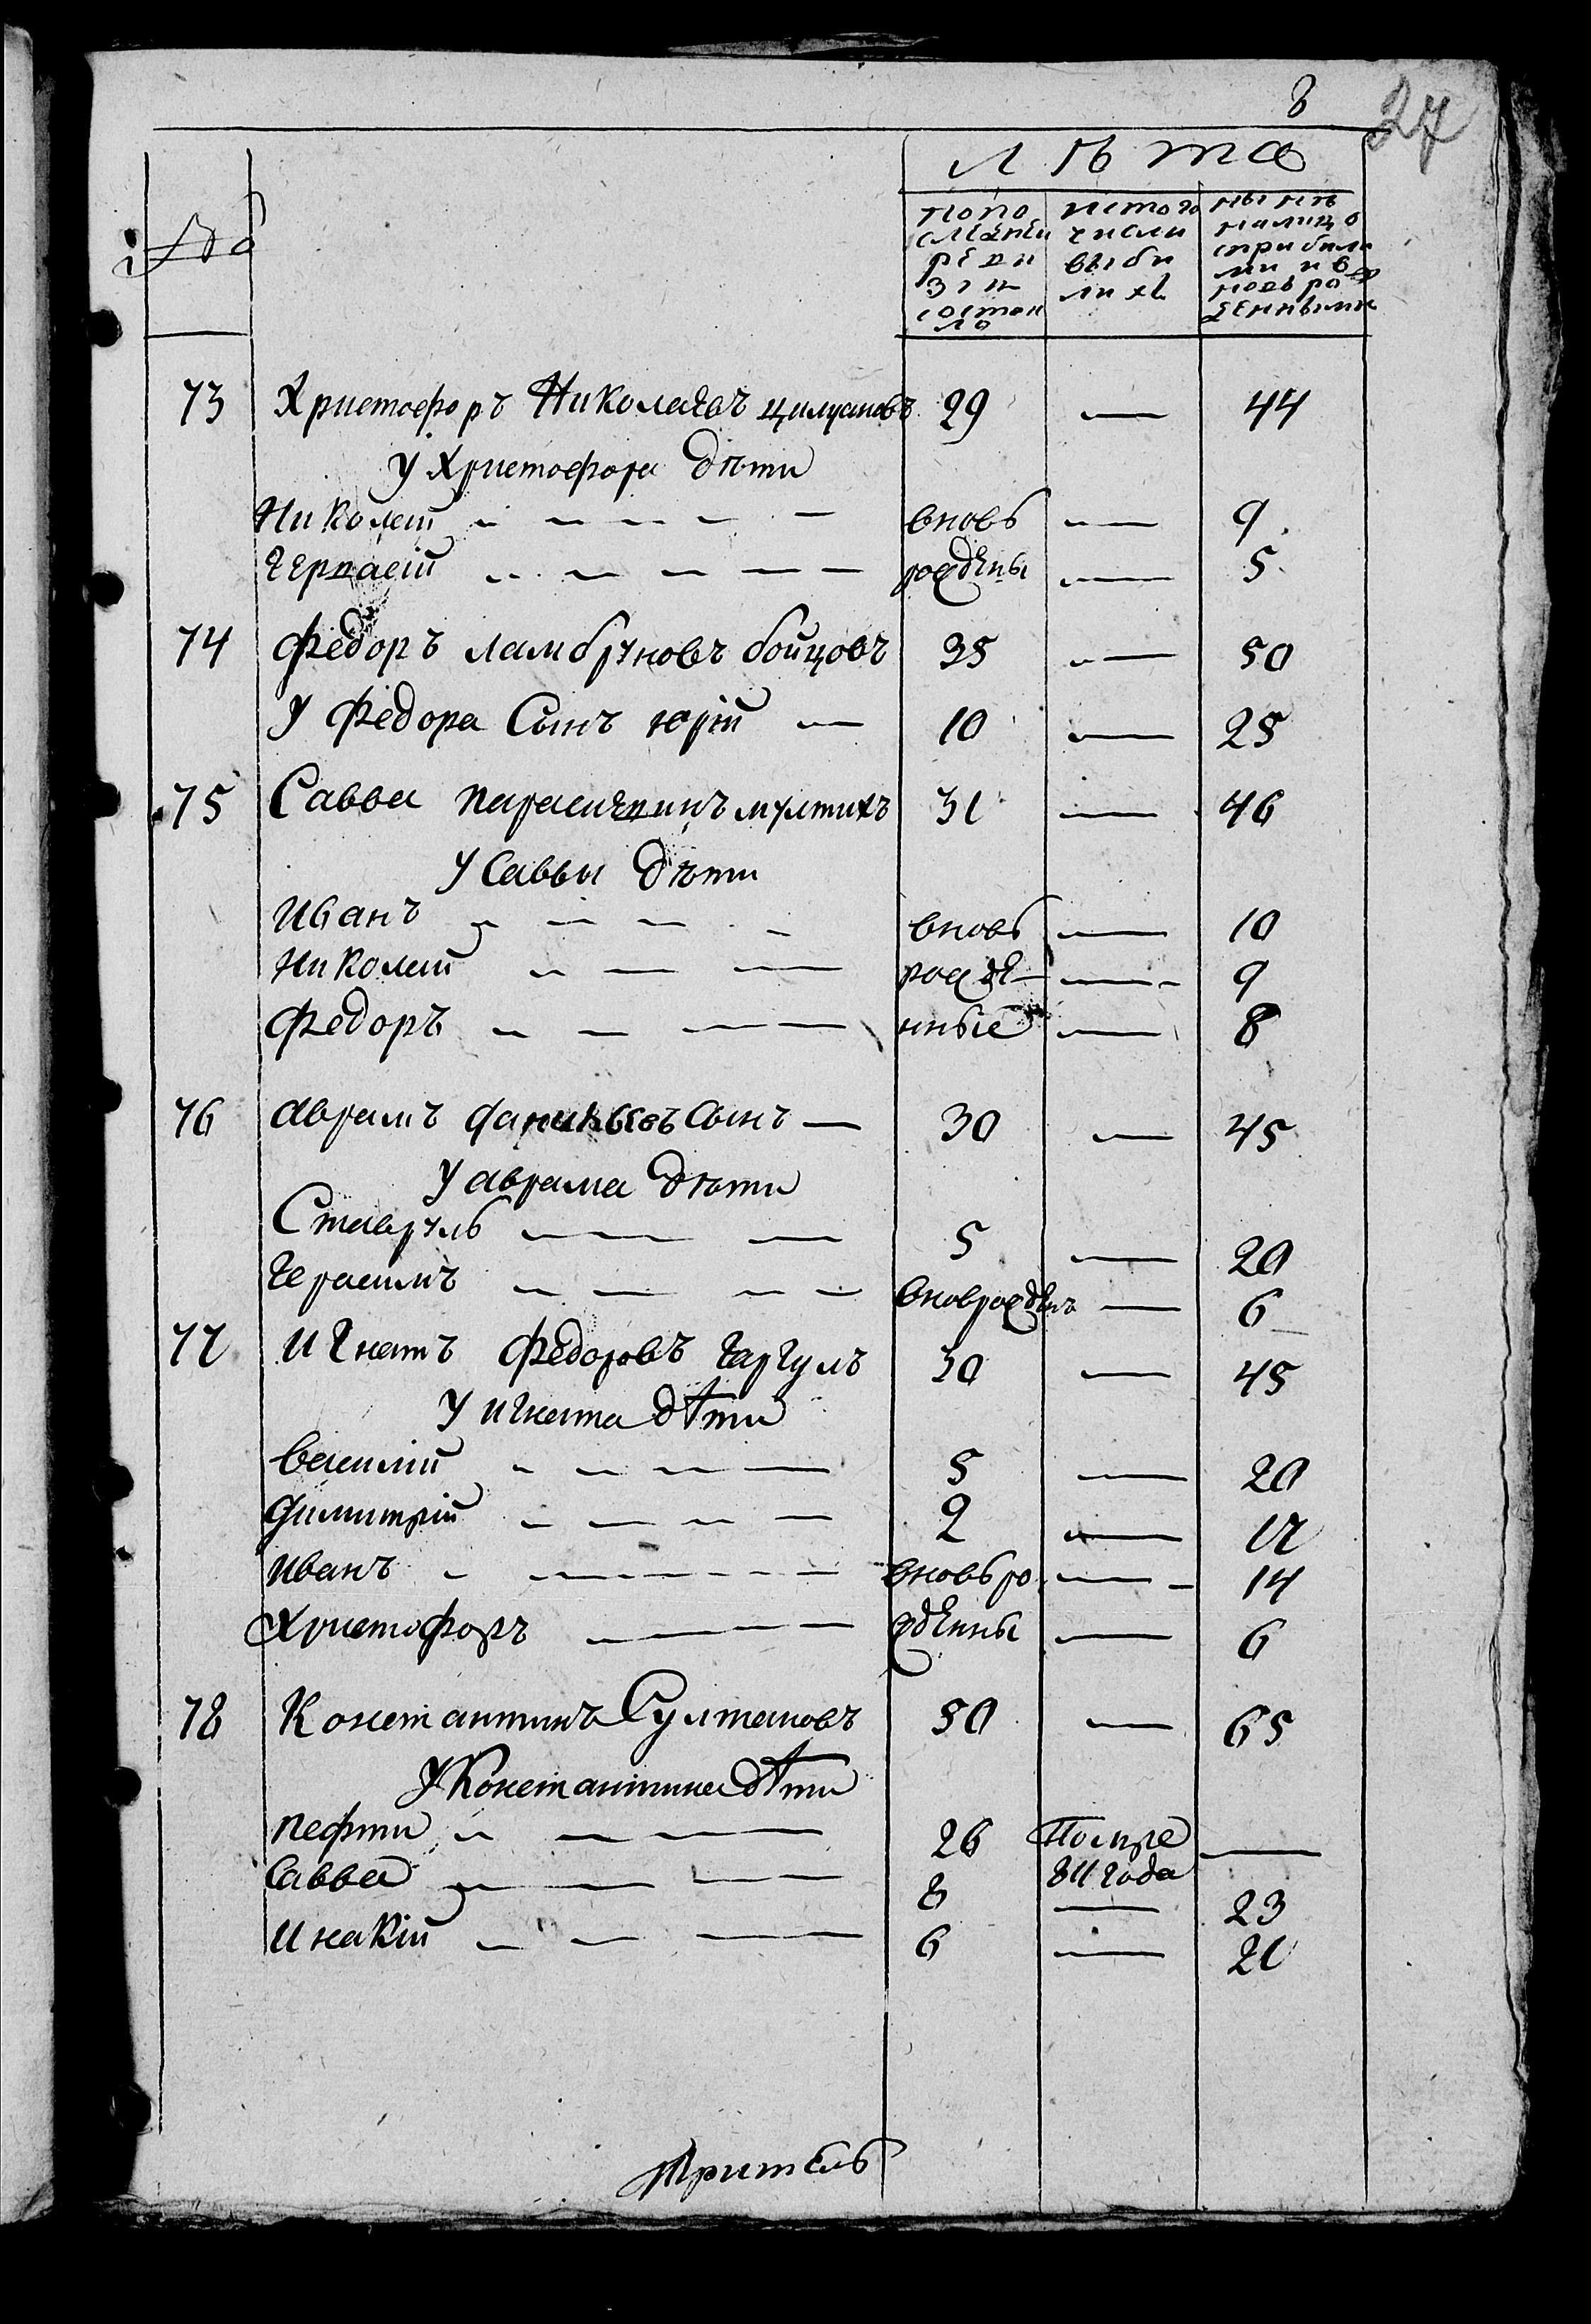 8
27
Лѣта
№
по послѣдней ревизiи состояло
изъ того числа выбылихъ
нынѣ на лицо с прибылими и вновь рожденными
73 Христофоръ Николаевъ 29 — 44
у Христофора дѣти
Николай вновь — 9
Гервасiй рождены — 5
74 Федоръ Ламбриновъ бойцовъ 35 — 50
у Федора Сынъ юрiй — 10 — 25
75 Савва мултихъ 31 — 46
у Саввы дѣти
Иванъ вновь — 10
Николай рожде — 9
Федоръ нные — 8
76 аврамъ Сынъ — 30 — 45
у аврама дѣти
Ставрулъ 5 — 20
Герасимъ вноврожденъ — 6
77 Игнатъ Федоровъ Гаргулъ 30 — 45
у игната дѣти
Василiй 5 — 20
Димитрiй 2 — 17
Иванъ вновь ро — 14
Христофоръ жденны — 6
78 Константинъ Султановъ 50 — 65
у Константина дѣти
пефти 26 Помре —
811 года
Савва 8 — 23
Инакiй 6 — 21